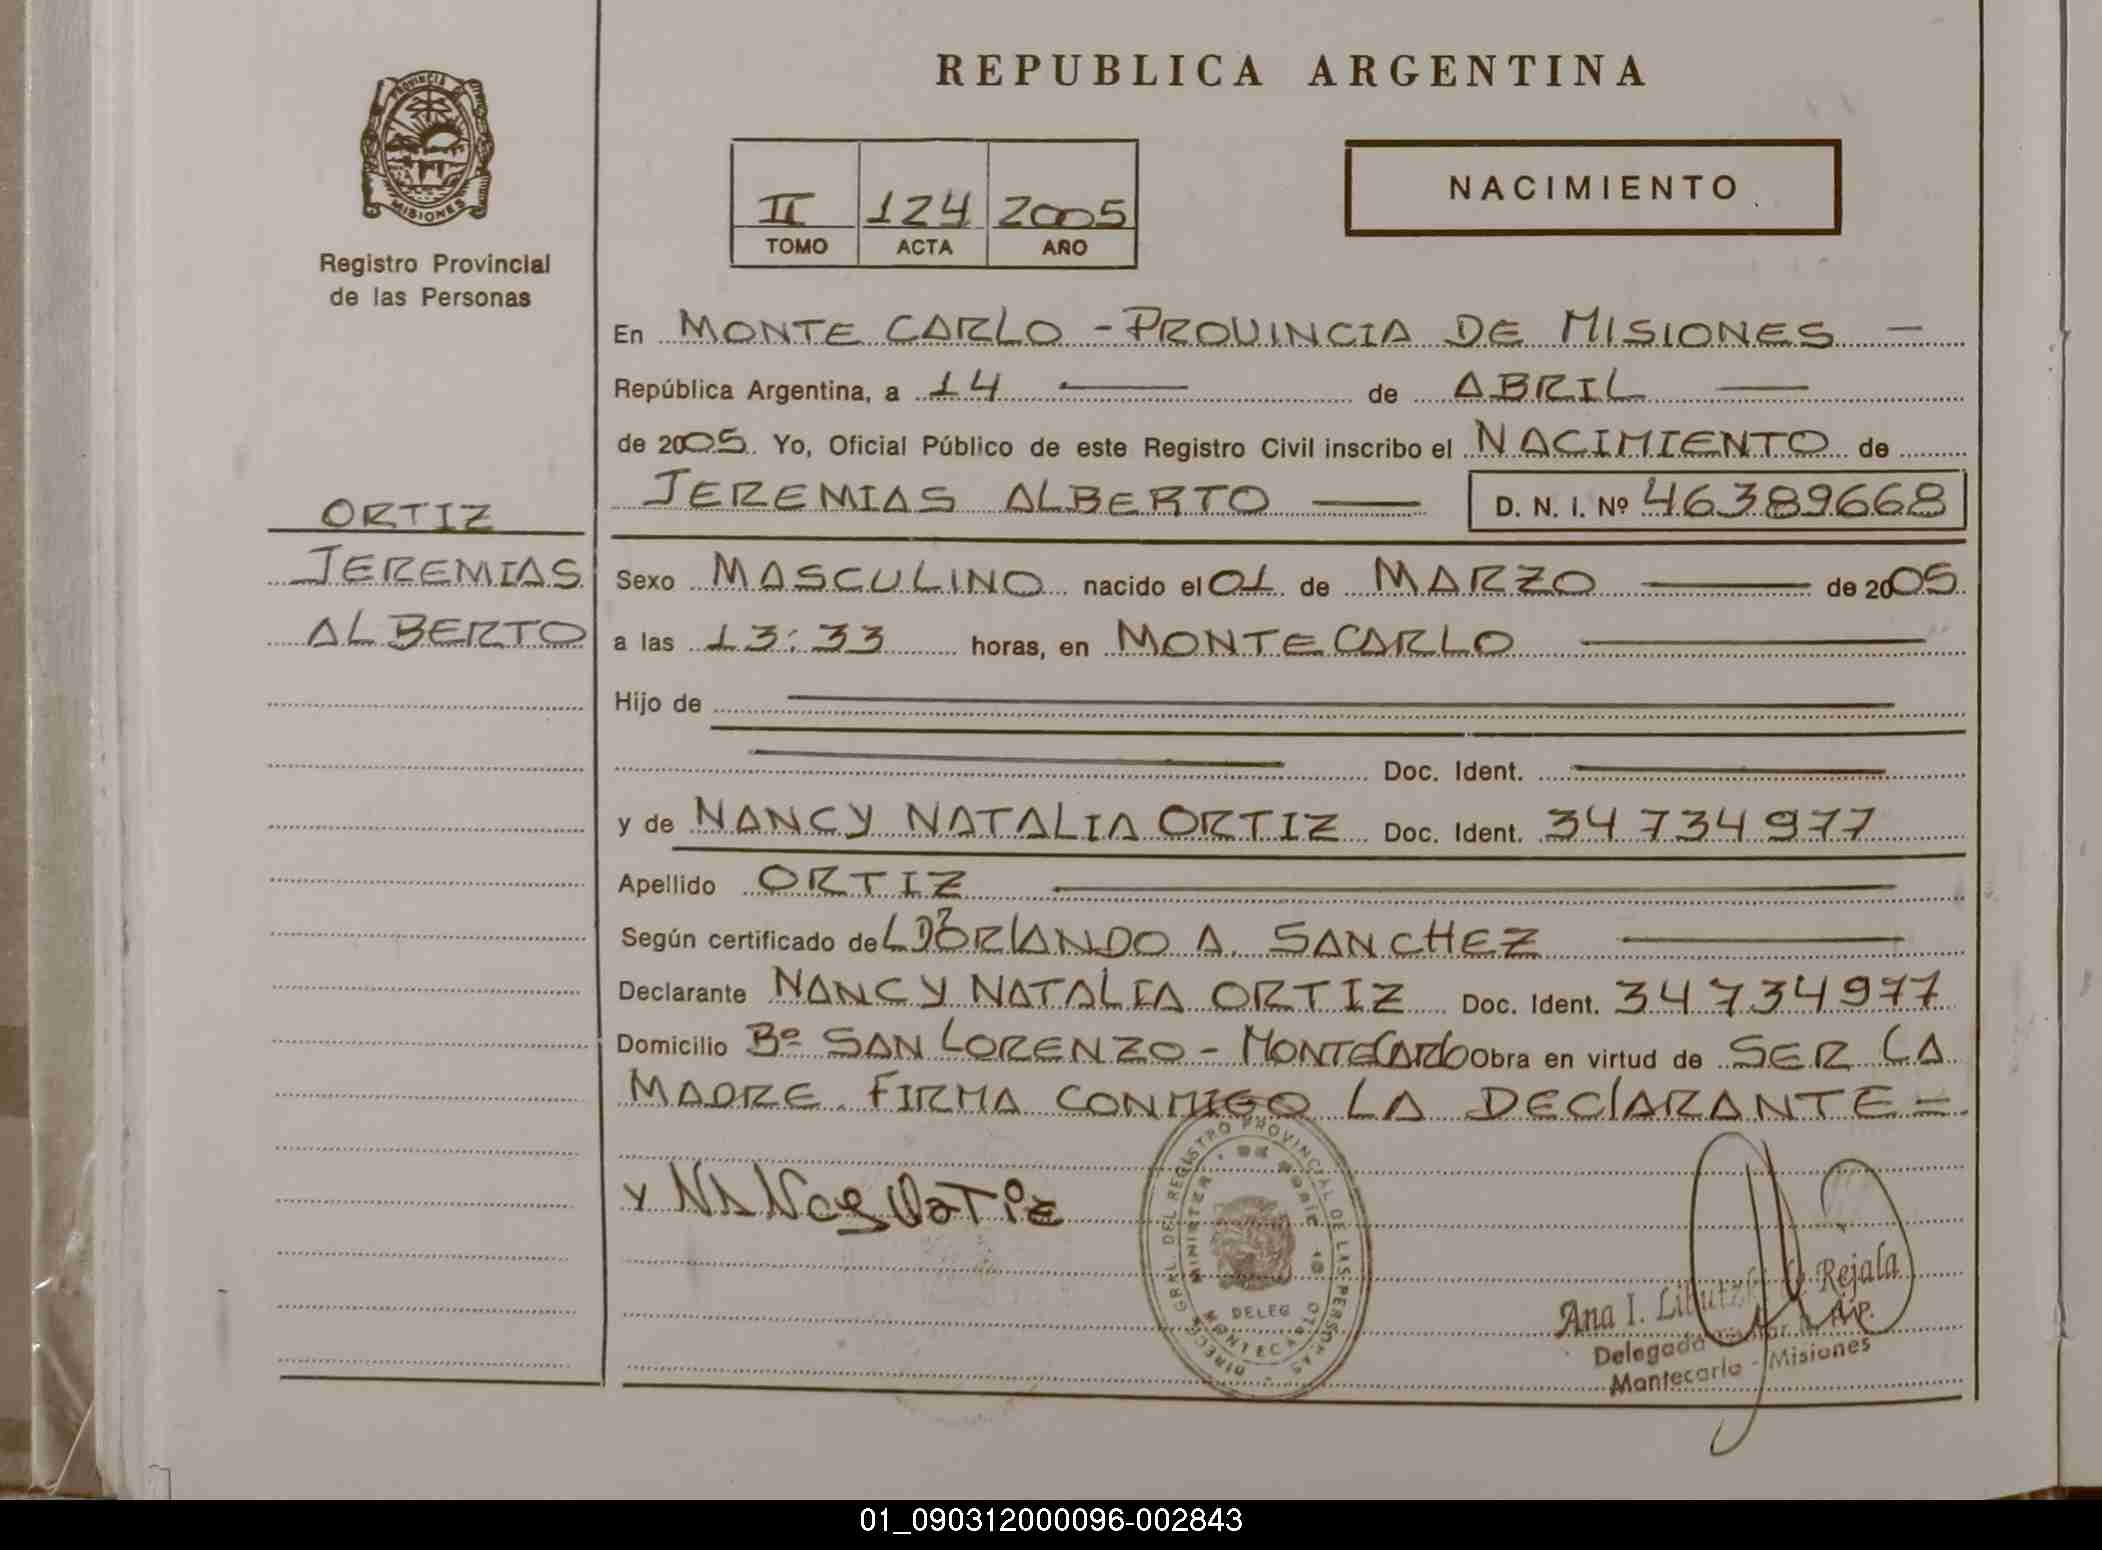 REPUBLICA ARGENTINA
PROVINCIA DE
MISIONES
Registro Provincial
de las Personas
II 124 2005
TOMO ACTA AÑO
NACIMIENTO
En MONTE CARLO - PROVINCIA DE MISIONES -
República Argentina, a 14 de ABRIL
de 2005. Yo, Oficial Público de este Registro Civil inscribo el NACIMIENTO de
JEREMIAS ALBERTO D. N. I. Nº 46389668
ORTIZ
JEREMIAS
ALBERTO
Sexo MASCULINO nacido el 01 de MARZO de 2005
a las 13:33 horas, en MONTECARLO
Hijo de
Doc. Ident.
y de NANCY NATALIA ORTIZ Doc. Ident. 34734977
Apellido ORTIZ
Según certificado de ORLANDO A. SANCHEZ
Declarante NANCY NATALIA ORTIZ Doc. Ident. 34734977
Domicilio Bº SAN LORENZO - MONTECARLO Obra en virtud de SER LA
MADRE. FIRMA CONMIGO LA DECLARANTE -
DIRECC. GRAL. DEL REGISTRO PROVINCIAL DE LAS PERSONAS
DELEG
MONTECARLO
Ana I. Rejala
Delegada
Montecarlo - Misiones
01_090312000096-002843